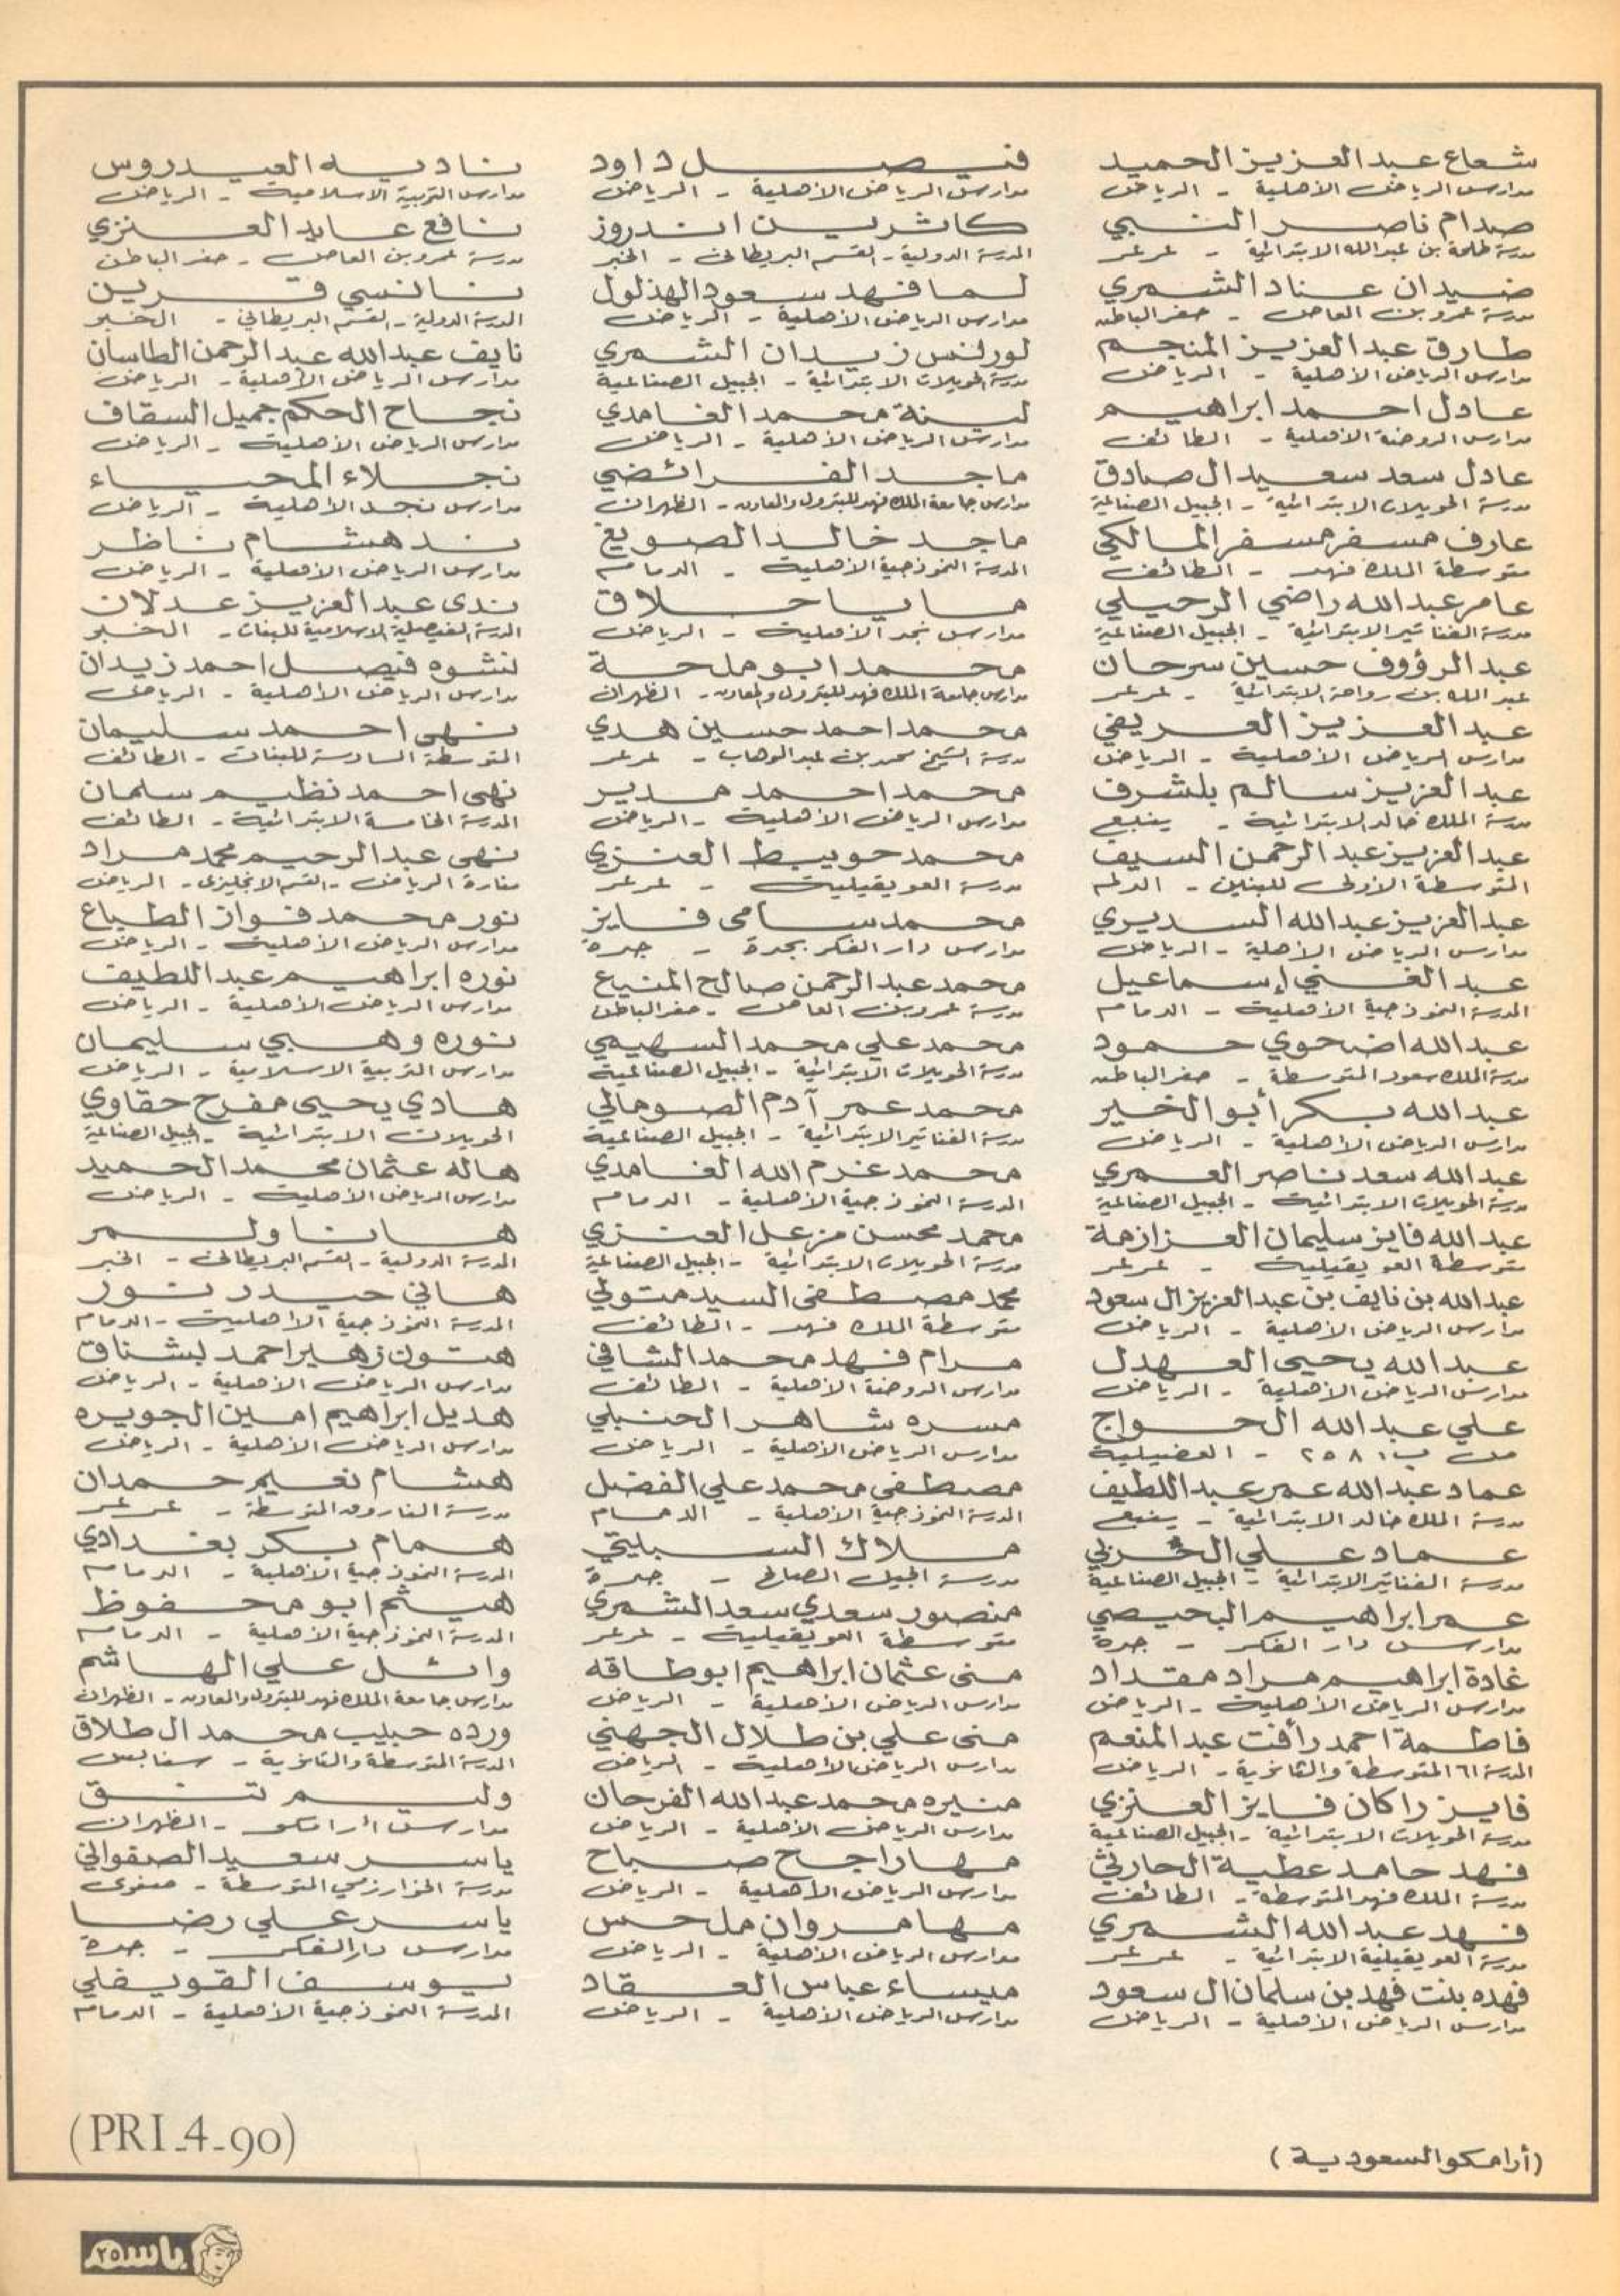 شعاع عبدالعزيز الحميد
مدارس الرياض الأهلية - الرياض
صدام ناصر
مدرسة طلحة بن عبدالله الابتدائية - عرعر
ضيدان عناد الشمري
مدرسة عمرو بن العاص - حفر الباطن
طارق عبدالعزيز المنجم
مدارس الرياض الأهلية - الرياض
عادل احمد ابراهيم
مدارس الروضة الأهلية - الطائف
عادل سعد سعيد ال صادق
مدرسة الحويلات الابتدائية - الجبيل الصناعية
عارف مسفر مسفر المالكي
متوسطة الملك فهد - الطائف
عامر عبدالله راضي الرحيلي
مدرسة الفناتير الابتدائية - الجبيل الصناعية
عبدالرؤوف حسين سرحان
عبدالله بن رواحة الابتدائية - عرعر
عبدالعزيز العريفي
مدارس الرياض الأهلية - الرياض
عبدالعزيز سالم بلشرف
مدرسة الملك خالد الابتدائية - ينبع
عبدالعزيز عبدالرحمن السيف
المتوسطة الأولى للبنين - الدلم
عبدالعزيز عبدالله السديري
مدارس الرياض الأهلية - الرياض
عبدالغني إسماعيل
المدرسة النموذجية الأهلية - الدمام
عبدالله اضحوي حمود
مدرسة الملك سعود المتوسطة - حفر الباطن
عبدالله بكر أبو الخير
مدارس الرياض الأهلية - الرياض
عبدالله سعد ناصر العمري
مدرسة الحويلات الابتدائية - الجبيل الصناعية
عبدالله فايز سليمان العزازمة
متوسطة العويقيلية - عرعر
عبدالله بن نايف بن عبدالعزيز ال سعود
مدارس الرياض الأهلية - الرياض
عبدالله يحيى العهدل
مدارس الرياض الأهلية - الرياض
علي عبدالله الحواج
ص ب ٢٥٨١ - الفضيلية
عماد عبدالله عمر عبداللطيف
مدرسة الملك خالد الابتدائية - ينبع
عماد علي
مدرسة الفناتير الابتدائية - الجبيل الصناعية
عمر ابراهيم البحيصي
مدارس دار الفكر - جدة
غادة ابراهيم مراد مقداد
مدارس الرياض الأهلية - الرياض
فاطمة احمد رأفت عبدالمنعم
المدرسة ٦١ المتوسطة والثانوية - الرياض
فايز راكان فايز العنزي
مدرسة الحويلات الابتدائية - الجبيل الصناعية
فهد حامد عطية الحارثي
مدرسة الملك فهد المتوسطة - الطائف
فهد عبدالله الشمري
مدرسة العويقيلية الابتدائية - عرعر
فهده بنت فهد بن سلمان ال سعود
مدارس الرياض الأهلية - الرياض
فيصل داود
مدارس الرياض الأهلية - الرياض
كاثرين اندروز
المدرسة الدولية - القسم البريطاني - الخبر
لما فهد سعود الهذلول
مدارس الرياض الأهلية - الرياض
لورنس زيدان الشمري
مدرسة الحويلات الابتدائية - الجبيل الصناعية
لينة محمد الغامدي
مدارس الرياض الأهلية - الرياض
ماجد الفرائضي
مدارس جامعة الملك فهد للبترول والمعادن - الظهران
ماجد خالد الصويغ
المدرسة النموذجية الأهلية - الدمام
مايا حلاق
مدارس نجد الأهلية - الرياض
محمد ابو ملحة
مدارس جامعة الملك فهد للبترول والمعادن - الظهران
محمد احمد حسين هدي
مدرسة الشيخ محمد بن عبدالوهاب - عرعر
محمد احمد مدير
مدارس الرياض الأهلية - الرياض
محمد حويبط العنزي
مدرسة العويقيلية - عرعر
محمد سامى فايز
مدارس دار الفكر بجدة - جدة
محمد عبدالرحمن صالح المنيع
مدرسة عمرو بن العاص - حفر الباطن
محمد علي محمد السهيمي
مدرسة الحويلات الابتدائية - الجبيل الصناعية
محمد عمر آدم الصومالي
مدرسة الفناتير الابتدائية - الجبيل الصناعية
محمد غرم الله الغامدي
المدرسة النموذجية الأهلية - الدمام
محمد محسن مزعل العنزي
مدرسة الحويلات الابتدائية - الجبيل الصناعية
محمد مصطفى السيد متولي
متوسطة الملك فهد - الطائف
مرام فهد محمد الشافي
مدارس الروضة الأهلية - الطائف
مسره شاهر الحنبلي
مدارس الرياض الأهلية - الرياض
مصطفى محمد علي الفضل
المدرسة النموذجية الأهلية - الدمام
ملاك السبليتي
مدرسة الجيل الصالح - جدة
منصور سعدي سعد الشمري
متوسطة العويقيلية - عرعر
منى عثمان ابراهيم ابوطاقه
مدارس الرياض الأهلية - الرياض
منى علي بن طلال الجهني
مدارس الرياض الأهلية - الرياض
منيره محمد عبدالله الفرحان
مدارس الرياض الأهلية - الرياض
مها راجح صباح
مدارس الرياض الأهلية - الرياض
مها مروان ملحس
مدارس الرياض الأهلية - الرياض
ميساء عباس العقاد
مدارس الرياض الأهلية - الرياض
ناديه العيدروس
مدارس التربية الاسلامية - الرياض
نافع عايد العنزي
مدرسة عمرو بن العاص - حفر الباطن
نانسي قرين
المدرسة الدولية - القسم البريطاني - الخبر
نايف عبدالله عبدالرحمن الطاسان
مدارس الرياض الأهلية - الرياض
نجاح الحكم جميل السقاف
مدارس الرياض الأهلية - الرياض
نجلاء المحياء
مدارس نجد الأهلية - الرياض
ند هشام ناظر
مدارس الرياض الأهلية - الرياض
ندى عبدالعزيز عدلان
المدرسة الفيصلية الاسلامية للبنات - الخبر
نشوه فيصل احمد زيدان
مدارس الرياض الأهلية - الرياض
نهى احمد سليمان
المتوسطة السادسة للبنات - الطائف
نهى احمد نظيم سلمان
المدرسة الخامسة الابتدائية - الطائف
نهى عبدالرحيم محمد مراد
منارة الرياض - القسم الانجليزى - الرياض
نور محمد فواز الطباع
مدارس الرياض الأهلية - الرياض
نوره ابراهيم عبداللطيف
مدارس الرياض الأهلية - الرياض
نوره وهبي سليمان
مدارس التربية الاسلامية - الرياض
هادي يحيى مفرح حقاوي
الحويلات الابتدائية - الجبيل الصناعية
هاله عثمان محمد الحميد
مدارس الرياض الأهلية - الرياض
هانا ولمر
المدرسة الدولية - القسم البريطاني - الخبر
هاني حيدر نور
المدرسة النموذجية الأهلية - الدمام
هتون زهير احمد لبشناق
مدارس الرياض الأهلية - الرياض
هديل ابراهيم امين الجويره
مدارس الرياض الأهلية - الرياض
هشام نعيم حمدان
مدرسة الفاروق المتوسطة - عرعر
همام بكر بغدادي
المدرسة النموذجية الأهلية - الدمام
هيثم ابو محفوظ
المدرسة النموذجية الأهلية - الدمام
وائل علي الهاشم
مدارس جامعة الملك فهد للبترول والمعادن - الظهران
ورده حبيب محمد ال طلاق
المدرسة المتوسطة والثانوية - سنابس
وليم تنق
مدارس أرامكو - الظهران
ياسر سعيد الصفواني
مدرسة الخوارزمي المتوسطة - صفوى
ياسر علي رضا
مدارس دار الفكر - جدة
يوسف القويفلي
المدرسة النموذجية الأهلية - الدمام
(أرامكو السعودية)
(PRI_4_90)
باسم ٢٥